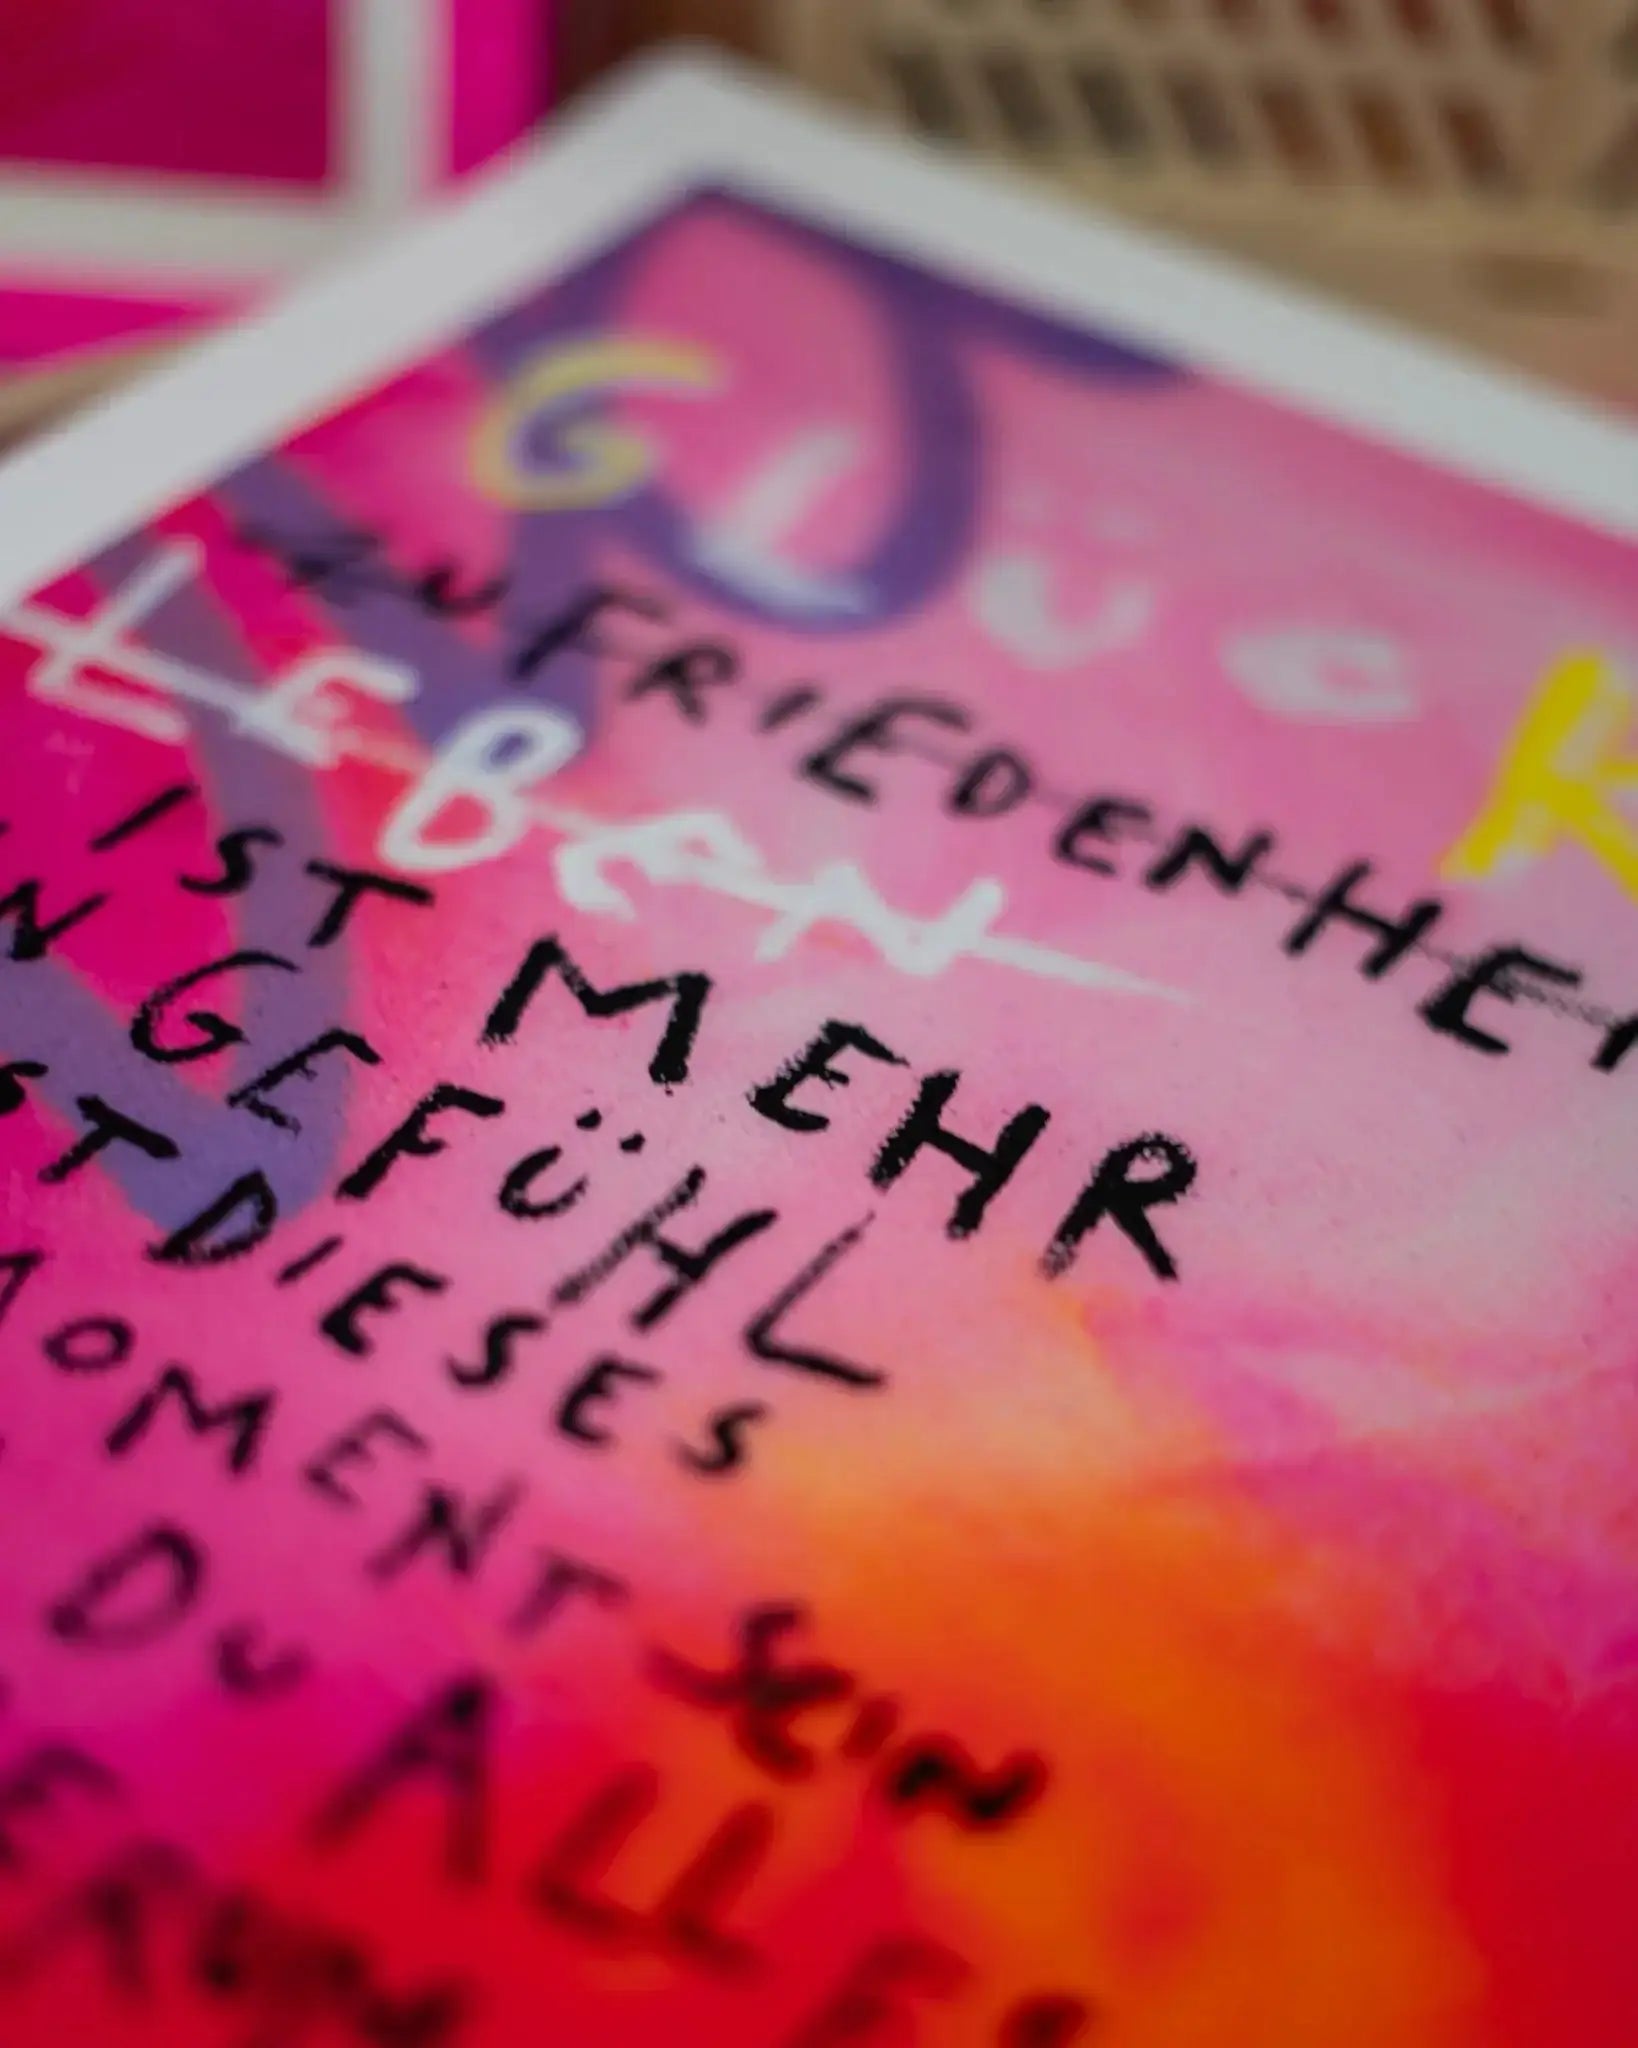 GLÜCK
ZUFRIEDENHEI
LEBEN
IST MEHR
N GEFÜHL
ST DIESES
MOMENT SEIN
DU ALLE